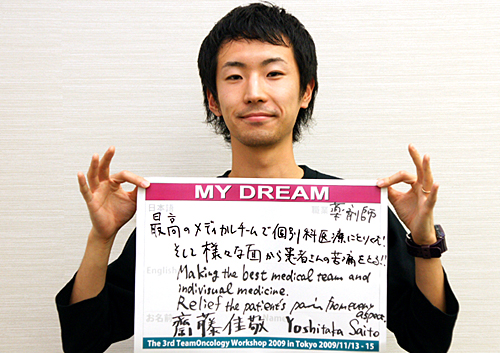 MY DREAM
日本語
薬剤師
最高のメディカルチームで個別科医療にとりくむ!
そして様々な面から患者さんの苦痛をとる!!
English
Making the best medical team and
indivisual medicine.
Relief the patient's pain from every
aspect.
お名前
齋藤佳敬 Yoshitaka Saito
The 3rd TeamOncology Workshop 2009 in Tokyo 2009/11/13 - 15